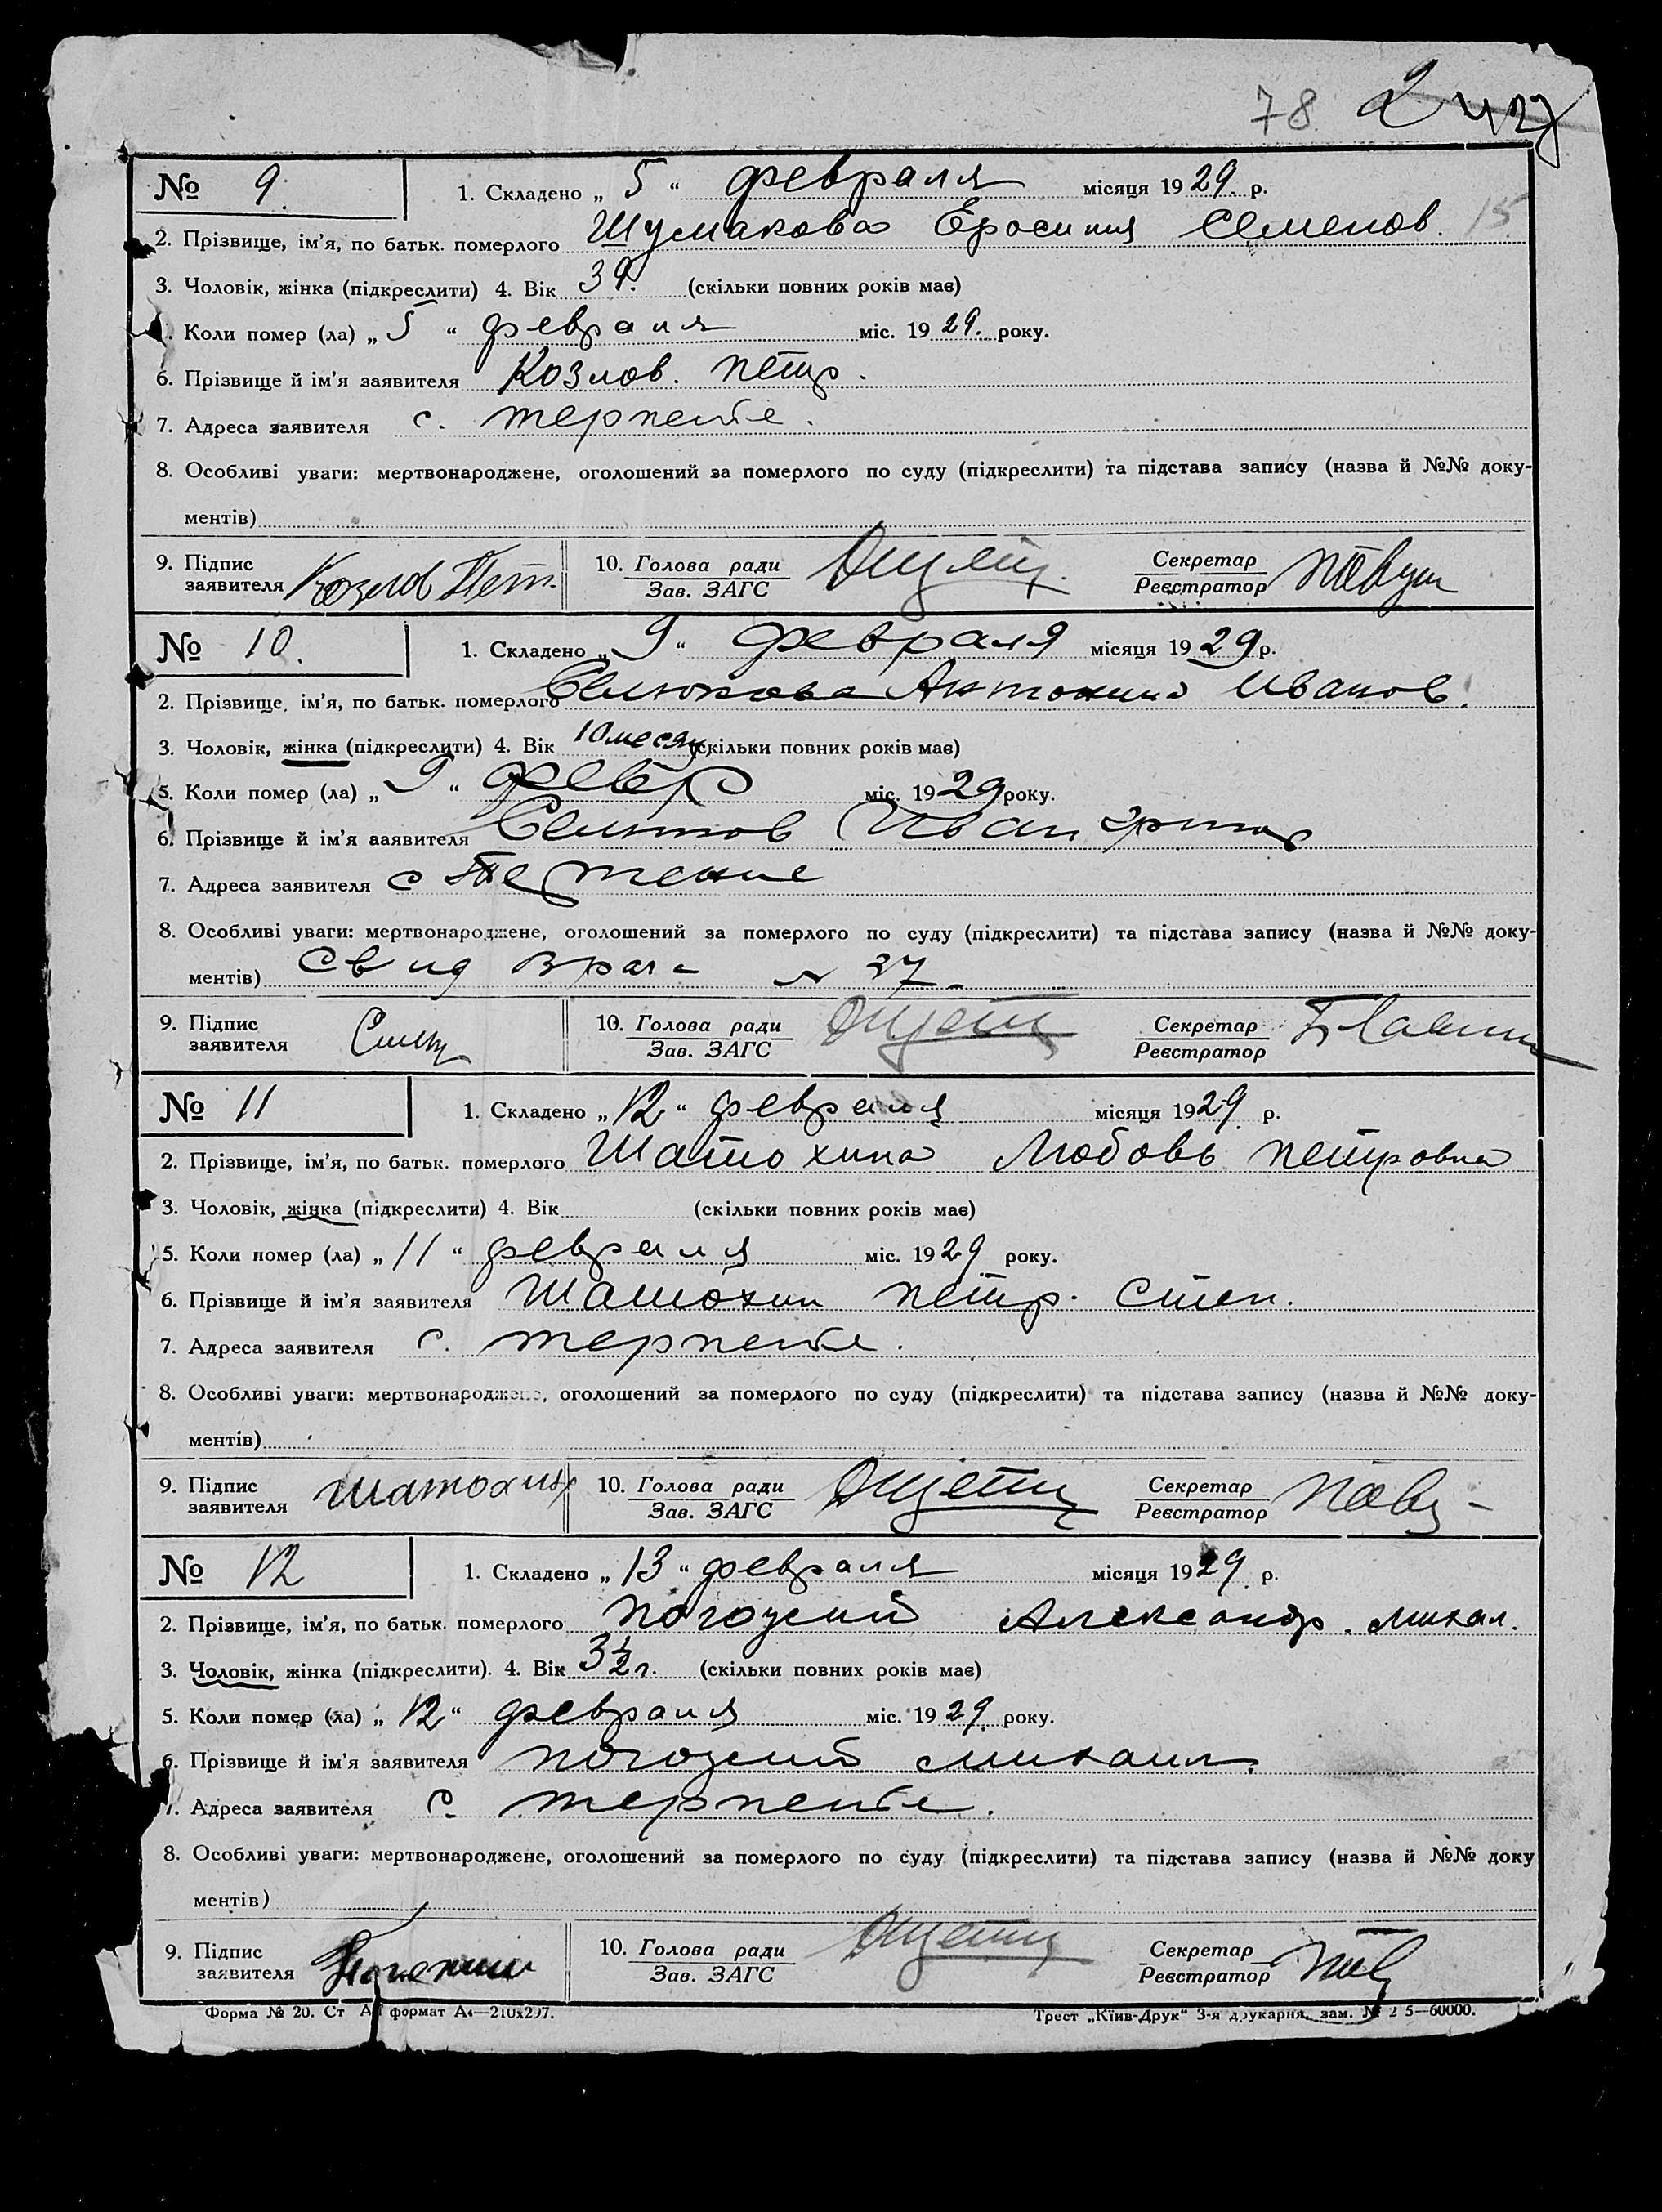 78 2
№ 9. 1. Складено „ 5 “ февраля місяця 1929. р.
15
2. Прізвище, ім’я, по батьк. померлого Шумакова Еросиния Семенов.
3. Чоловік, жінка (підкреслити) 4. Вік 39. (скільки повних років має)
Коли помер (ла) „ 5 “ февраля міс. 1929. року.
6. Прізвище й ім’я заявителя Козлов. Петр.
7. Адреса заявителя с. Терпение.
8. Особливі уваги: мертвонароджене, оголошений за померлого по суду (підкреслити) та підстава запису (назва й №№ доку-
ментів)
9. Підпис заявителя Козлов Пет. 10. Голова ради Зав. ЗАГС Секретар Реєстратор
№ 10. 1. Складено „ 9 “ февраля місяця 1929 р.
2. Прізвище, ім’я, по батьк. померлого Антонина Иванов.
3. Чоловік, жінка (підкреслити) 4. Вік 10 месяц (скільки повних років має)
5. Коли помер (ла) „ 9 “ февр міс. 1929 року.
6. Прізвище й ім’я заявителя Иван
7. Адреса заявителя с Терпение
8. Особливі уваги: мертвонароджене, оголошений за померлого по суду (підкреслити) та підстава запису (назва й №№ доку-
ментів) Свид врача № 37
9. Підпис заявителя 10. Голова ради Зав. ЗАГС Секретар Реєстратор
№ 11 1. Складено „ 12 “ февраля місяця 1929 р.
2. Прізвище, ім’я, по батьк. померлого Шатохина Любовь Петровна
3. Чоловік, жінка (підкреслити) 4. Вік (скільки повних років має)
5. Коли помер (ла) „ 11 “ февраля міс. 1929 року.
6. Прізвище й ім’я заявителя Шатохин Петр. Степ.
7. Адреса заявителя с. Терпение.
8. Особливі уваги: мертвонароджене, оголошений за померлого по суду (підкреслити) та підстава запису (назва й №№ доку-
ментів)
9. Підпис заявителя Шатохин 10. Голова ради Зав. ЗАГС Секретар Реєстратор
№ 12 1. Складено „ 13 “ февраля місяця 1929 р.
2. Прізвище, ім’я, по батьк. померлого Александр. Михал.
3. Чоловік, жінка (підкреслити). 4. Вік 3½ г. (скільки повних років має)
5. Коли помер (ла) „ 12 “ февраля міс. 1929 року.
6. Прізвище й ім’я заявителя Михаил.
7. Адреса заявителя с. Терпение.
8. Особливі уваги: мертвонароджене, оголошений за померлого по суду (підкреслити) та підстава запису (назва й №№ доку
ментів)
9. Підпис заявителя 10. Голова ради Зав. ЗАГС Секретар Реєстратор
Форма № 20. Ст формат А4—210х297. Трест „Київ-Друк“ 3-я друкарня, зам. № 5—60000.